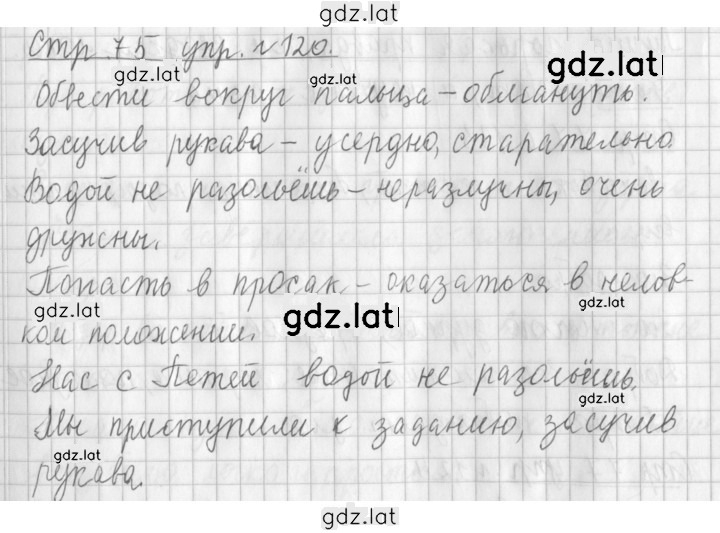 gdz.lat
Стр. 75 упр. №120.
gdz.lat
gdz.lat
gdz.lat
Обвести вокруг пальца – обмануть.
Засучив рукава – усердно, старательно.
Водой не разольёшь – неразлучны, очень
дружны.
Попасть в просак – оказаться в нелов-
gdz.lat
gdz.lat
gdz.lat
ком положении.
Нас с Петей водой не разольёшь.
gdz.lat
Мы приступили к заданию, засучив
gdz.lat
рукава.
gdz.lat